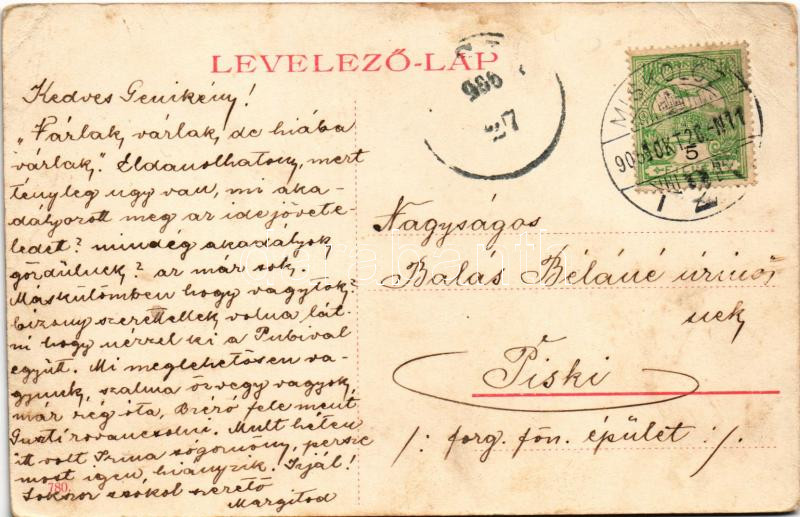 LEVELEZŐ-LAP
Kedves Genikény!
"Várlak, várlak, de hiába
várlak." Eldanolhatom, mert
tényleg ugy van, mi aka-
dályozott meg az idejövete-
ledet? mindég akadályok
gördülnek? az már sok.
Máskülömben hogy vagytok?
bizony szerettelek volna lát-
ni hogy nézzel ki a Pubival
együtt. Mi meglehetősen va-
gyunk, szalma özvegy vagyok,
már rég óta, Bíró fele ment
Guszti rovancsolni. Mult héten
itt volt Irma sógornöm, persze
most igen hiányzik. Irjál!
Sokszor csókol szerető
Margitod
780.
906
27
MISKOLCZ
906 OKT 26 N11
5
Nagyságos
Balás Béláné úrinő
nek
Piski
/: forg. fön. épület :/.